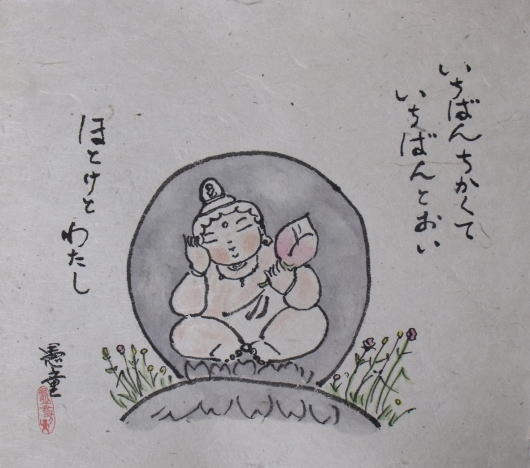 いちばんちかくて
いちばんとおい
ほとけと わたし
愚童